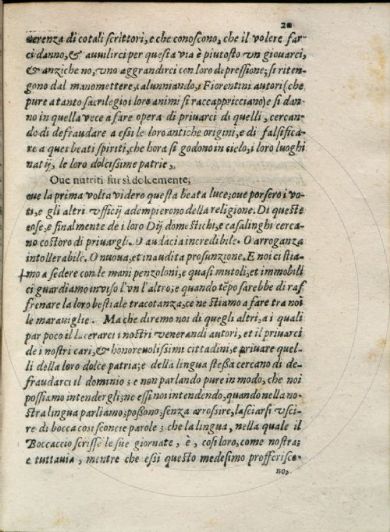 20
uerenza di cotali scrittori, e che conoscono, che il volere far
ci danno, & auuilirci per questa via è piutosto vn giouarci,
& anziche no, vno aggrandirci con loro depressione; si riten
gono dal manomettere, calunniando, i Fiorentini autori (che
pure a tanto sacrilegio i loro animi si raccappricciano) e si dan
no in quella vece a fare opera di priuarci di quelli, cercan
do di defraudare a essi le loro antiche origini, e di falsifica
re a quei beati spiriti, che hora si godono in cielo, i loro luoghi
natij, le loro dolcissime patrie,
Oue nutriti fur sì dolcemente,
oue la prima volta videro questa beata luce; oue porsero i vo
ti, e gli altri vfficij adempierono della religione. Di queste
cose, e finalmente de i loro Dij domestichi, e casalinghi cerca
no costoro di priuargli. O audacia incredibile. O arroganza
intollerabile. O nuoua, et inaudita prosunzione. E noi ci stia
mo a sedere con le mani penzoloni, e quasi mutoli, et immobili
ci guardiamo in viso l'vn l'altro; e quando tẽpo sarebbe di raf
frenare la loro bestiale tracotanza, ce ne stiamo a fare tra noi
le marauiglie. Ma che diremo noi di quegli altri, a i quali
par poco il lacerarci i nostri venerandi autori, et il priuarci
de i nostri cari, & honoreuolissimi cittadini, e priuare quel
li della loro dolce patria; e della lingua stessa cercano di de
fraudarci il dominio; e non parlando pure in modo, che noi
possiamo intendergli; ne essi noi intendendo, quando nella no
stra lingua parliamo; possono, senza arrosire, lasciarsi vsci
re di bocca cosi sconcie parole; che la lingua, nella quale il
Boccaccio scrisse le sue giornate, è, cosi loro, come nostra;
e tuttauia, mentre che essi questo medesimo profferisco-
no,